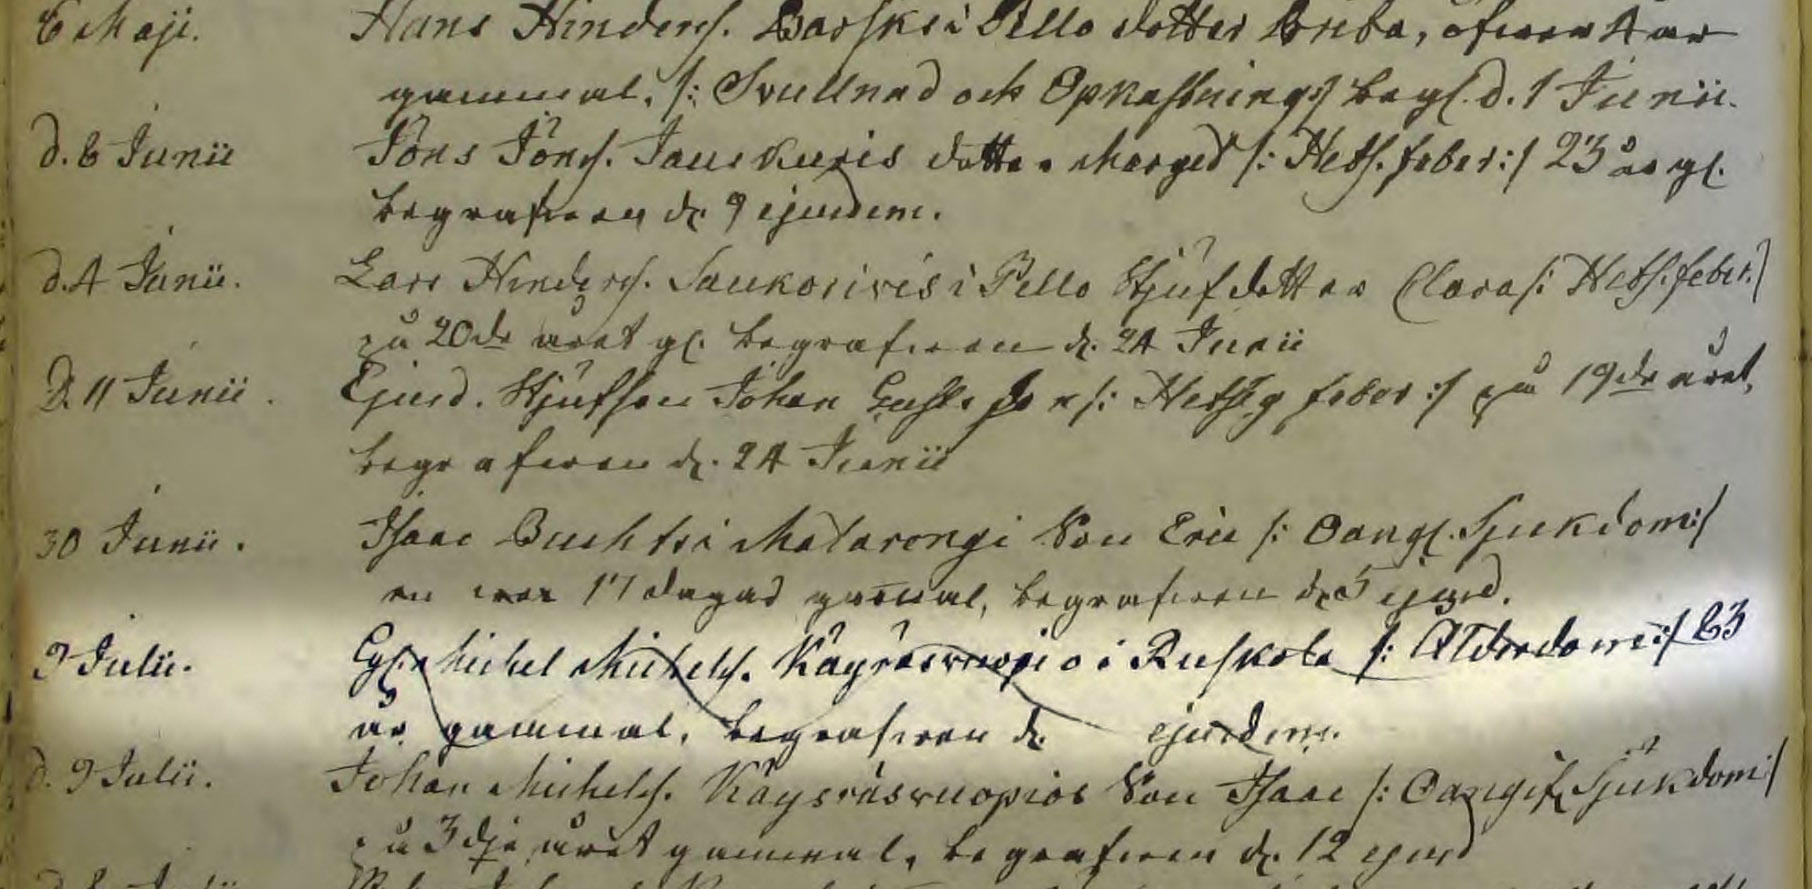 6 Maji. Hans Hinders. Barsks i Pello dotter Brita, öfver 4 år
gammal. /: Svullnad och Opkastning:/ begr. d. 1 Junii.
d. 6 Junii Jöns Jöns. Jauckuris dotter Marget /: Hets. feber:/ 23 år gl.
begrafven d. 9 ejusdem.
d. 4 Junii. Lars Hinders. Saukorivis i Pello Stjufdotter Clara /: Hets. feber:/
på 20de året gl. begrafven d. 24 Junii
D. 11 Junii. Ejusd. Stjufson Johan /: Hetsig feber:/ på 19de året,
begrafven d. 24 Junii
30 Junii. Isaac i Matarengi Son Eric /: Oangl. Sjukdom:/
17 dagar gammal, begrafven d. 5 ejusd.
9 Julii. Michel Michels. Käyräsvuopio i Ruskola /: Ålderdom:/ 83
år gammal, begrafven d. ejusdem.
d. 9 Julii. Johan Michels. Käyräsvuopios Son Isaac /: Oangif. Sjukdom:/
på 3dje året gammal, begrafven d. 12 ejusd